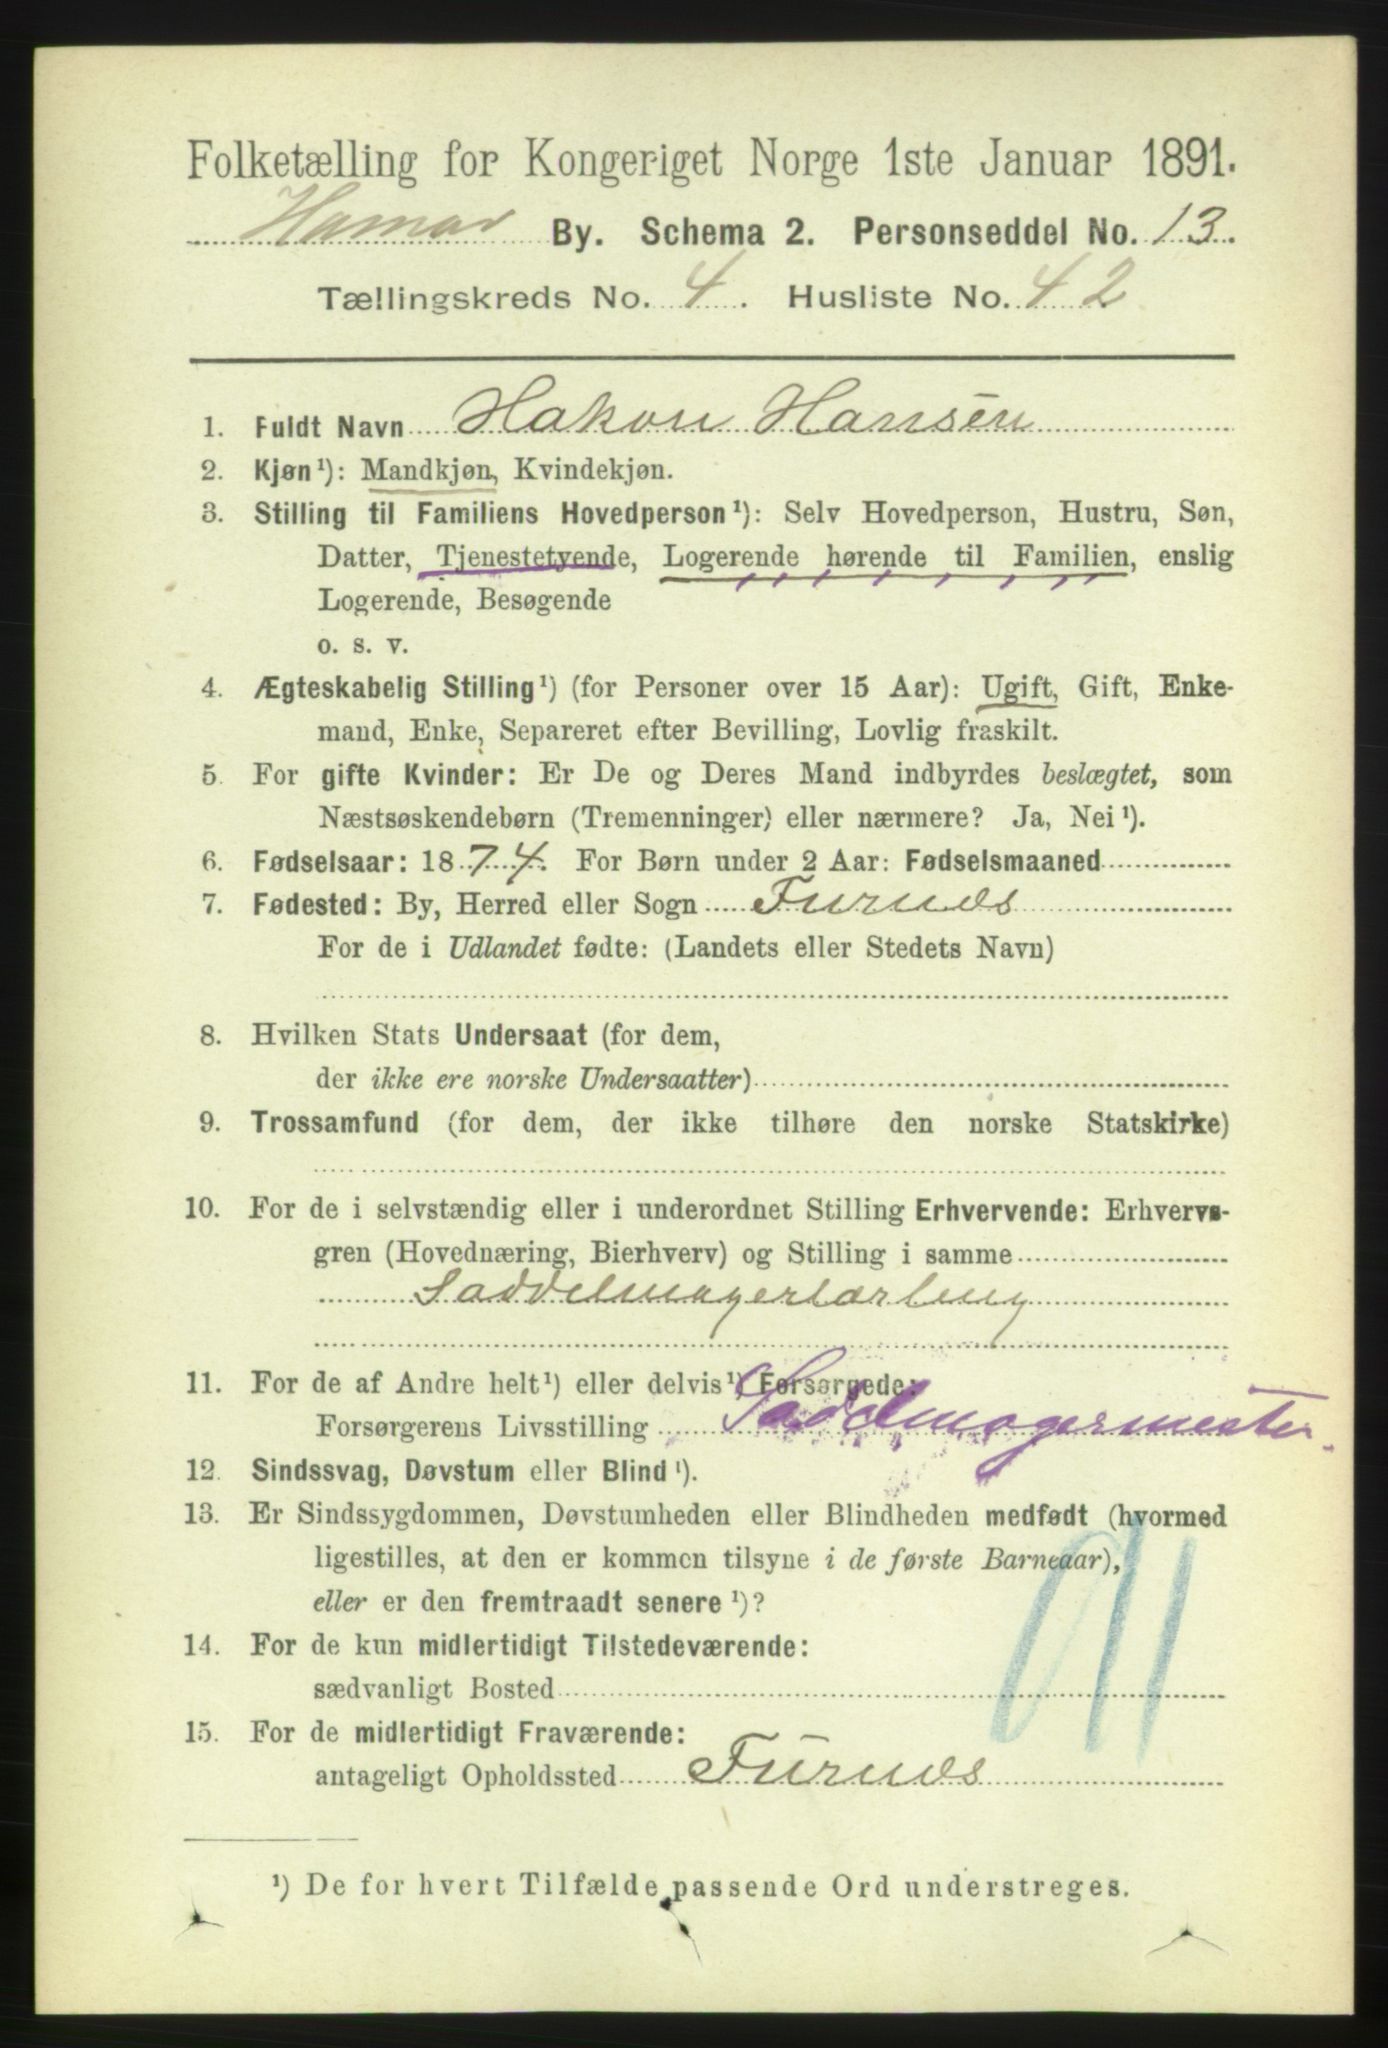 Folketælling for Kongeriget Norge 1ste Januar 1891.
Hamar By. Schema 2. Personseddel No. 13.
Tællingskreds No. 4. Husliste No. 42
1. Fuldt Navn Hakon Hansen
2. Kjøn¹): Mandkjøn, Kvindekjøn.
3. Stilling til Familiens Hovedperson¹): Selv Hovedperson, Hustru, Søn,
Datter, Tjenestetyende, Logerende hørende til Familien, enslig
Logerende, Besøgende
o. s. v.
4. Ægteskabelig Stilling¹) (for Personer over 15 Aar): Ugift, Gift, Enke-
mand, Enke, Separeret efter Bevilling, Lovlig fraskilt.
5. For gifte Kvinder: Er De og Deres Mand indbyrdes beslægtet, som
Næstsøskendebørn (Tremenninger) eller nærmere? Ja, Nei¹).
6. Fødselsaar: 1874. For Børn under 2 Aar: Fødselsmaaned
7. Fødested: By, Herred eller Sogn Furnes
For de i Udlandet fødte: (Landets eller Stedets Navn)
8. Hvilken Stats Undersaat (for dem,
der ikke ere norske Undersaatter)
9. Trossamfund (for dem, der ikke tilhøre den norske Statskirke)
10. For de i selvstændig eller i underordnet Stilling Erhvervende: Erhvervs-
gren (Hovednæring, Bierhverv) og Stilling i samme
Saddelmagerlærling
11. For de af Andre helt¹) eller delvis¹) Forsørgede:
Forsørgerens Livsstilling Saddelmagermester
12. Sindssvag, Døvstum eller Blind¹).
13. Er Sindssygdommen, Døvstumheden eller Blindheden medfødt (hvormed
ligestilles, at den er kommen tilsyne i de første Barneaar),
eller er den fremtraadt senere¹)?
14. For de kun midlertidigt Tilstedeværende:
sædvanligt Bosted
15. For de midlertidigt Fraværende:
antageligt Opholdssted Furnes
¹) De for hvert Tilfælde passende Ord understreges.